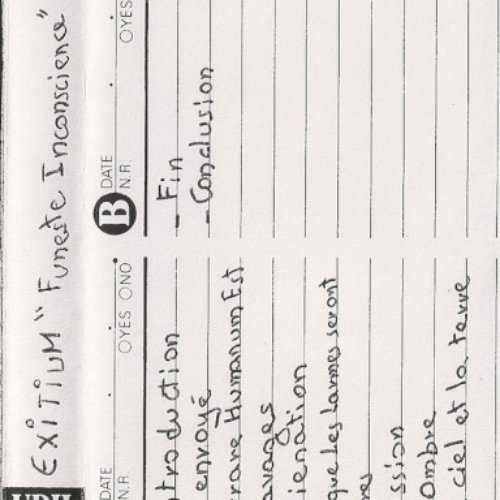 EXiTiUM "Funeste Inconscience"
DATE
N.R. YES NO
troduction
envoyé
rare Humanum Est
avages
iénation
que les larmes seront
es
ssion
ombre
ciel et la terre
B DATE
N.R. YES
- Fin
- Conclusion